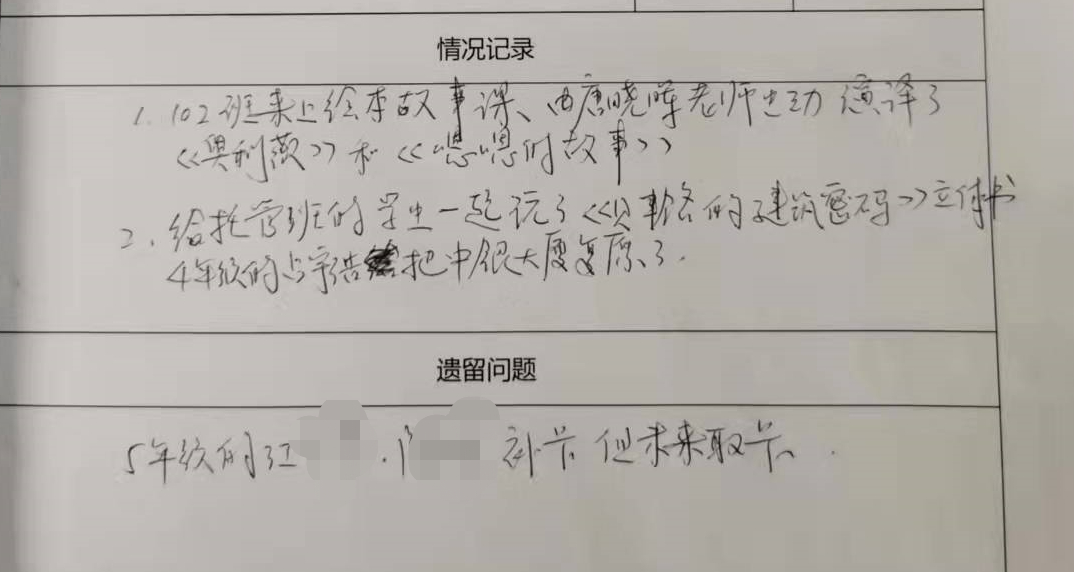 情况记录
1. 102班来上绘本故事课、由唐晓晖老师生动演译了
《奥利薇》和《嗯嗯的故事》
2. 给托管班的学生一起玩了《贝聿铭的建筑密码》立体书
4年级的占宇浩把中银大厦复原了.
遗留问题
5年级的江 . 补卡但未来取卡.